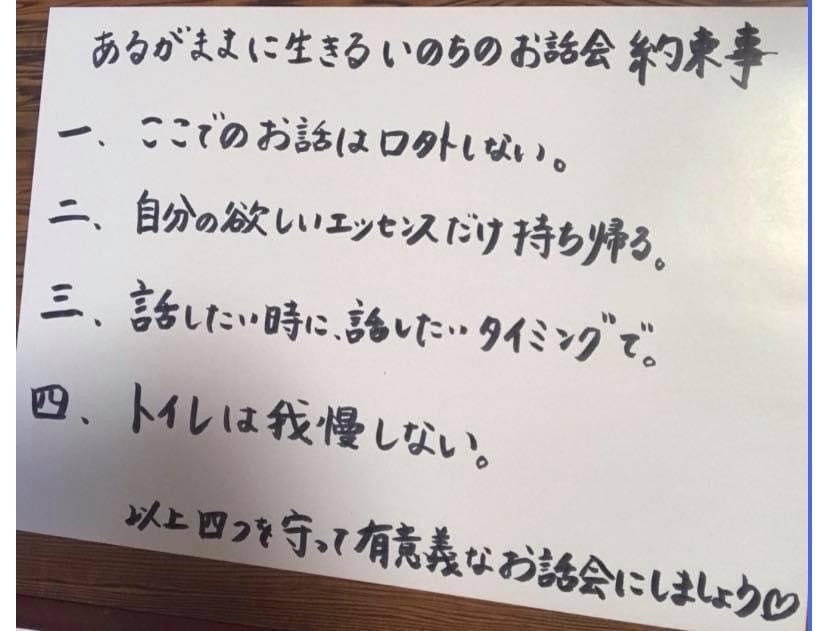 あるがままに生きるいのちのお話会 約束事
一、ここでのお話は口外しない。
二、自分の欲しいエッセンスだけ持ち帰る。
三、話したい時に、話したいタイミングで。
四、トイレは我慢しない。
以上四つを守って有意義なお話会にしましょう♡